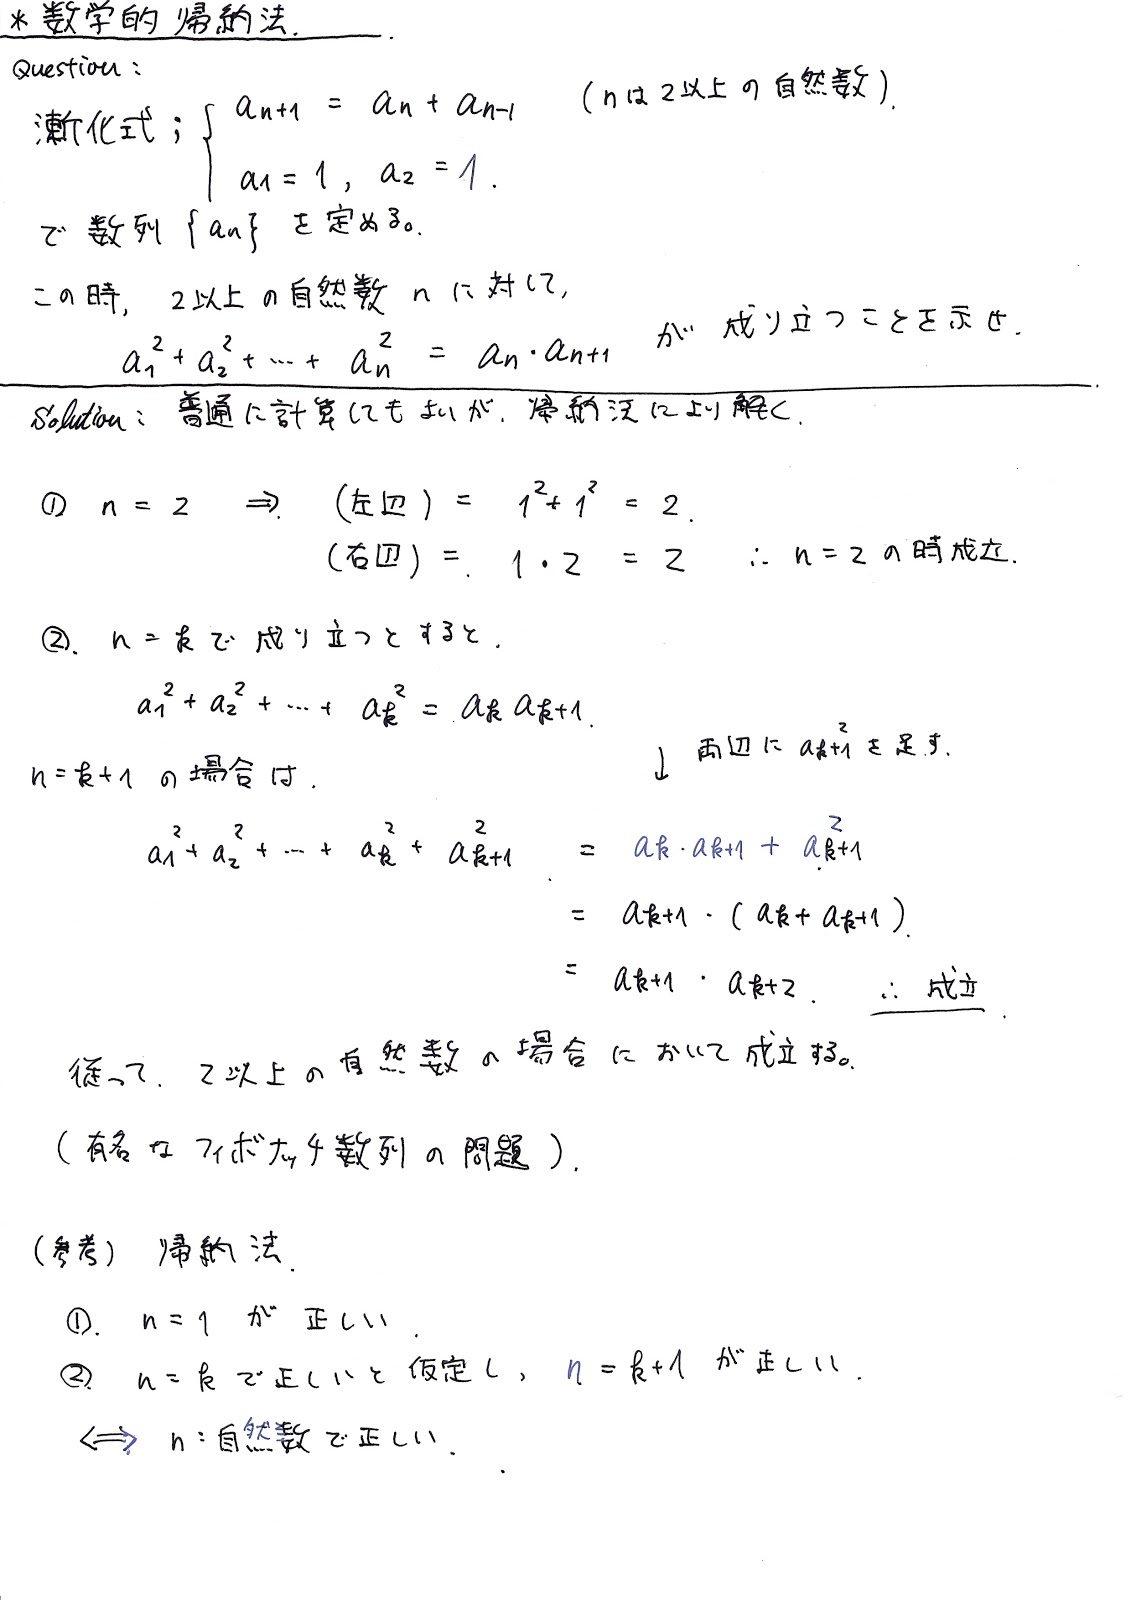 * 数学的帰納法.
Question:
漸化式; { an+1 = an + an-1 (nは2以上の自然数).
a1 = 1, a2 = 1.
で数列{an}を定める。
この時, 2以上の自然数nに対して,
a1² + a2² + … + an² = an・an+1 が成り立つことを示せ.
Solution: 普通に計算してもよいが, 帰納法により解く.
① n = 2 ⇒ (左辺) = 1² + 1² = 2.
(右辺) = 1・2 = 2 ∴ n=2の時成立.
②. n = kで成り立つとすると.
a1² + a2² + … + ak² = ak ak+1.
↓ 両辺にak+1²を足す.
n=k+1の場合は.
a1² + a2² + … + ak² + ak+1² = ak・ak+1 + ak+1²
= ak+1・(ak + ak+1).
= ak+1・ak+2. ∴ 成立.
従って. 2以上の自然数の場合において成立する。
(有名なフィボナッチ数列の問題).
(参考) 帰納法.
①. n=1が正しい.
② n=kで正しいと仮定し, n=k+1が正しい.
⟺ n:自然数で正しい.